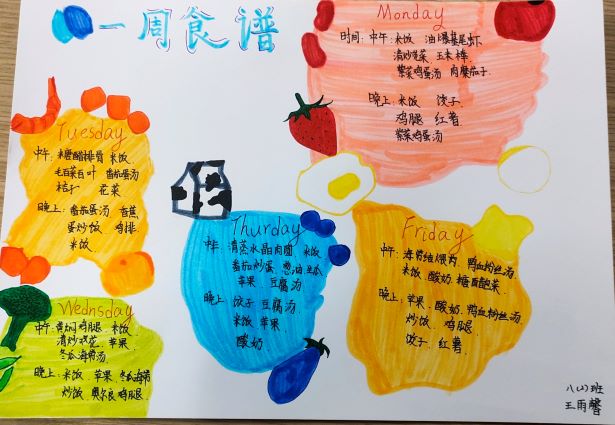 一周食谱
Monday
时间:中午:米饭 油爆基尾虾
清炒菠菜 玉米棒
紫菜鸡蛋汤 肉糜茄子
晚上:米饭 饺子
鸡腿 红薯
紫菜鸡蛋汤
Tuesday
中午:糖醋排骨 米饭
毛白菜百叶 番茄蛋汤
桔子 花菜
晚上:番茄蛋汤 香蕉
蛋炒饭 鸡排
米饭
Wednsday
中午:黄焖鸡腿 米饭
清炒 苹果
冬瓜海带汤
晚上:米饭 苹果 冬瓜海带
炒饭 奥尔良鸡腿
Thurday
中午:清蒸水晶肉圆 米饭
番茄炒蛋 葱油丝瓜
苹果 豆腐汤
晚上:饺子 豆腐汤
米饭 苹果
酸奶
Friday
中午:海带结煨肉 鸭血粉丝汤
米饭 酸奶 糖醋包菜
晚上:苹果 酸奶 鸭血粉丝汤
炒饭 鸡腿
饺子 红薯
八(2)班
王雨馨